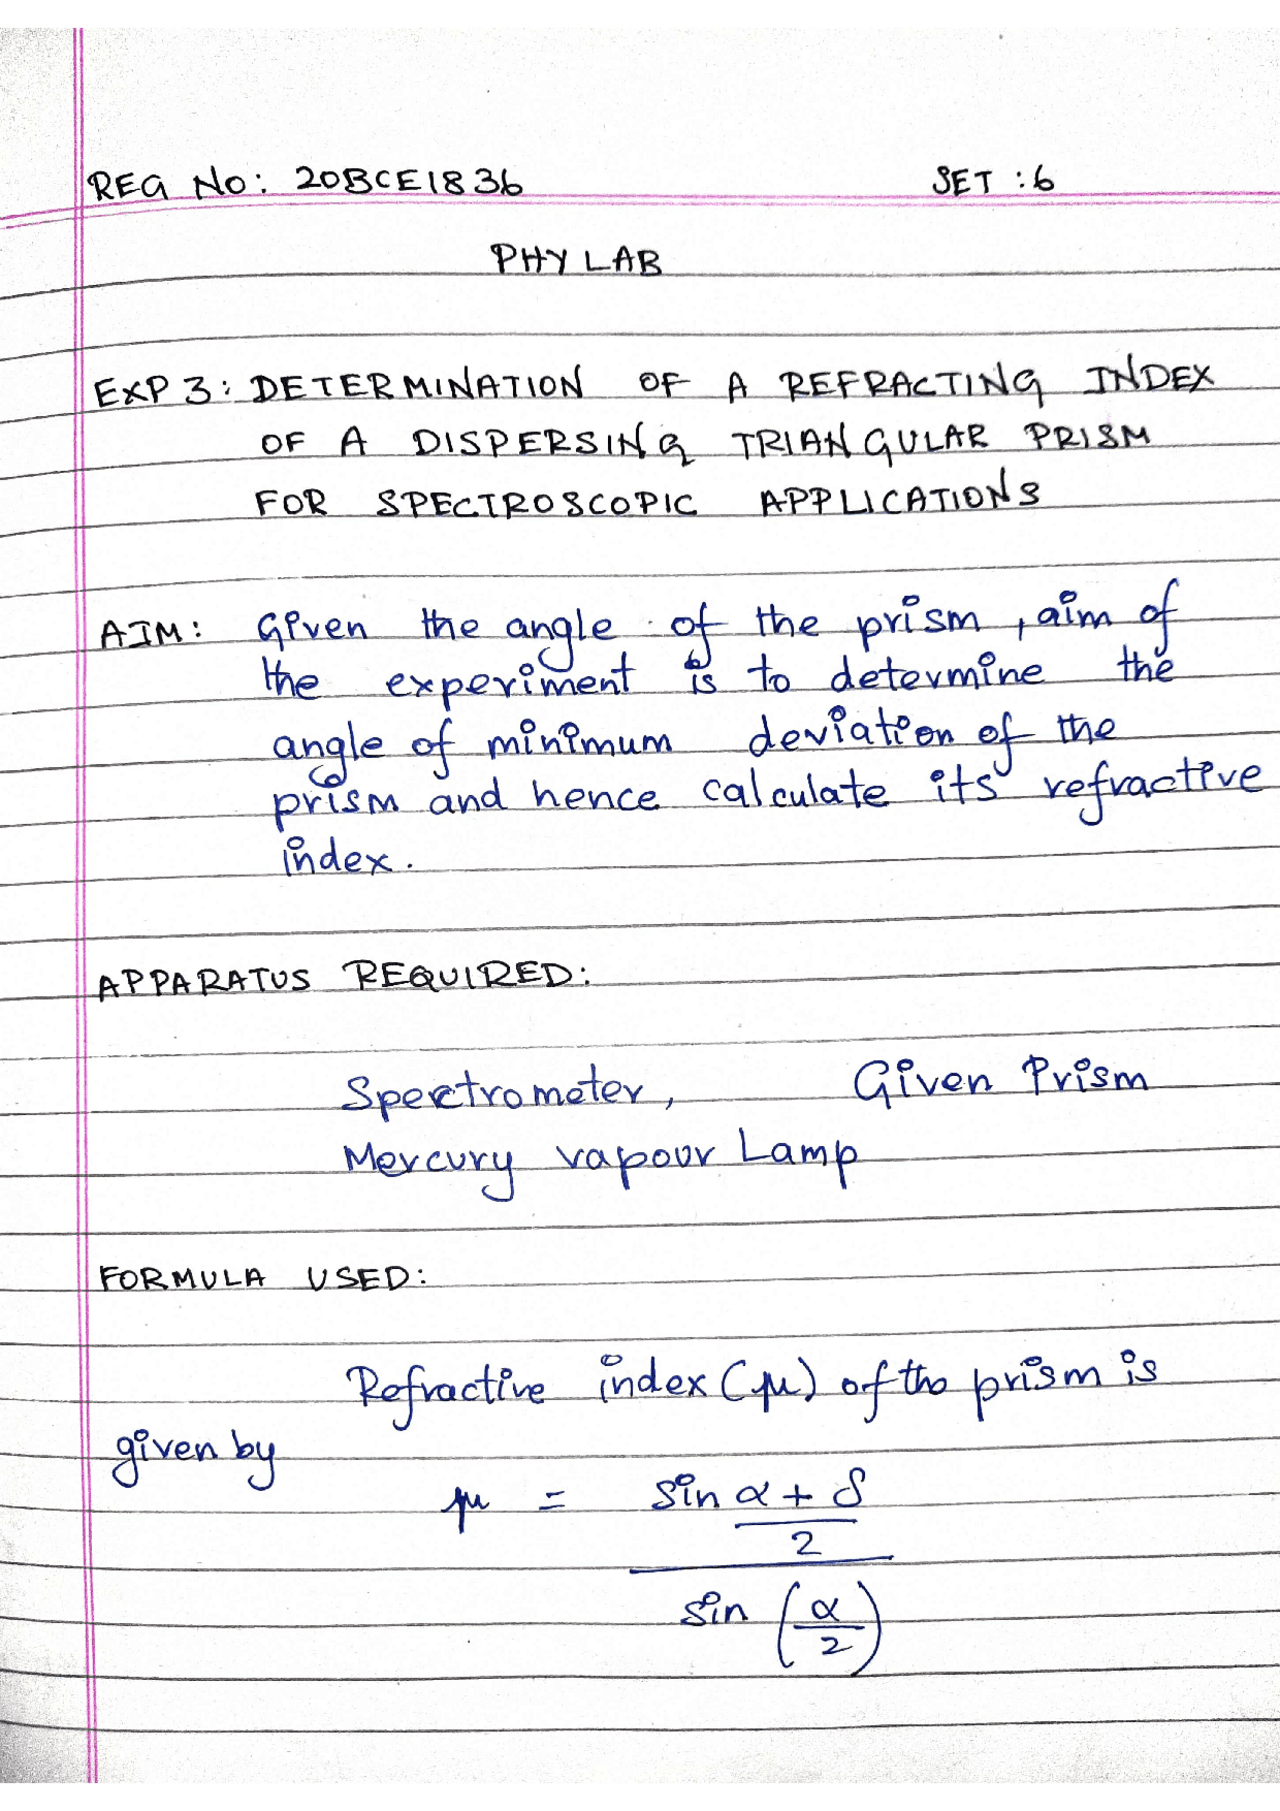 REG No: 20BCE1836 SET : 6
PHY LAB
EXP 3: DETERMINATION OF A REFRACTING INDEX
OF A DISPERSING TRIANGULAR PRISM
FOR SPECTROSCOPIC APPLICATIONS
AIM: Given the angle of the prism, aim of
the experiment is to determine the
angle of minimum deviation of the
prism and hence calculate its refractive
index.
APPARATUS REQUIRED:
Spectrometer, Given Prism
Mercury vapour Lamp
FORMULA USED:
Refractive index (μ) of the prism is
given by
μ = sin α + δ
2
sin (α/2)